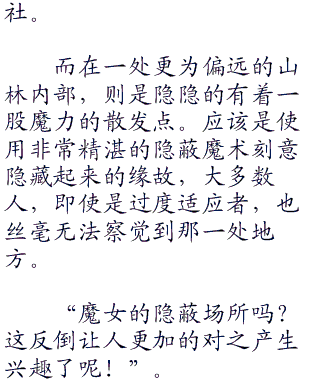 社。
而在一处更为偏远的山
林内部，则是隐隐的有着一
股魔力的散发点。应该是使
用非常精湛的隐蔽魔术刻意
隐藏起来的缘故，大多数
人，即使是过度适应者，也
丝毫无法察觉到那一处地
方。
“魔女的隐蔽场所吗？
这反倒让人更加的对之产生
兴趣了呢！”。